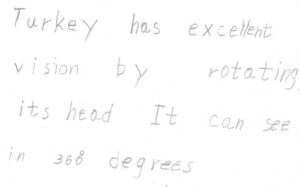 Turkey has excellent
vision by rotating
its head It can see
in 360 degrees